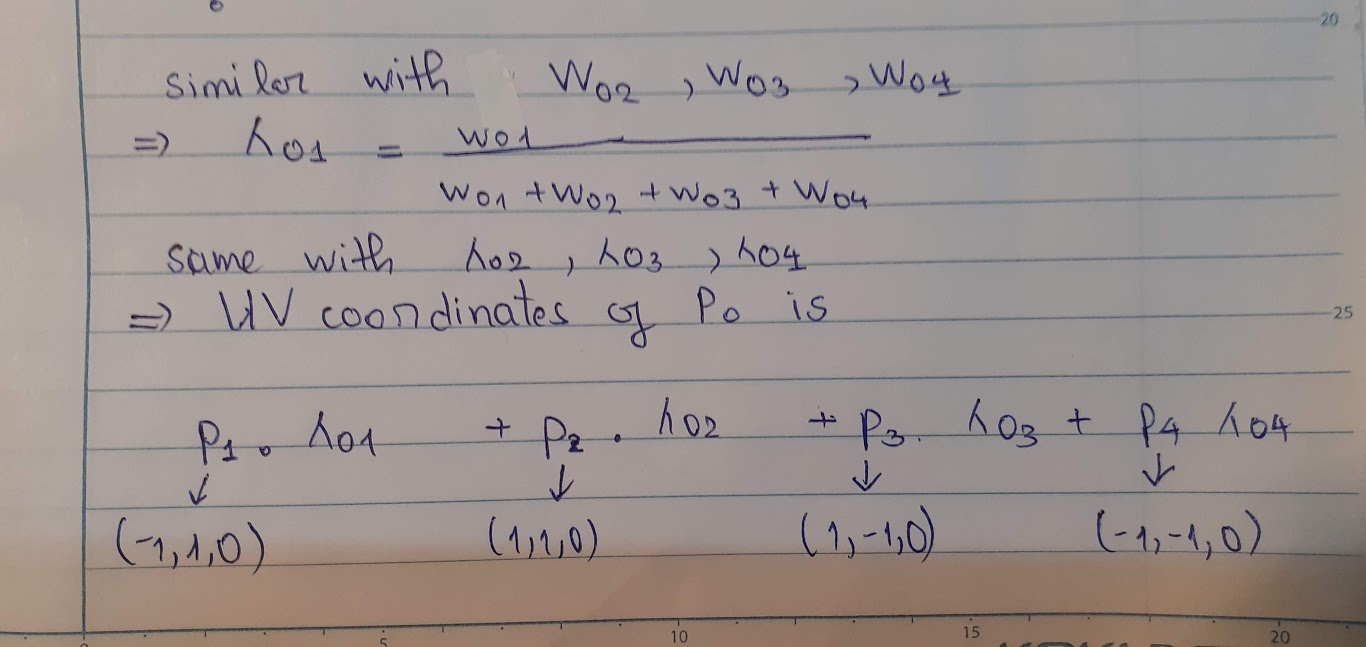 20
similar with W02 , W03 , W04
=> λ01 = w01
w01 + w02 + w03 + w04
same with λ02 , λ03 , λ04
=> UV coordinates of P0 is
25
P1 . λ01 + P2 . λ02 + P3 . λ03 + P4 λ04
↓ ↓ ↓ ↓
(-1,1,0) (1,1,0) (1,-1,0) (-1,-1,0)
0 5 10 15 20